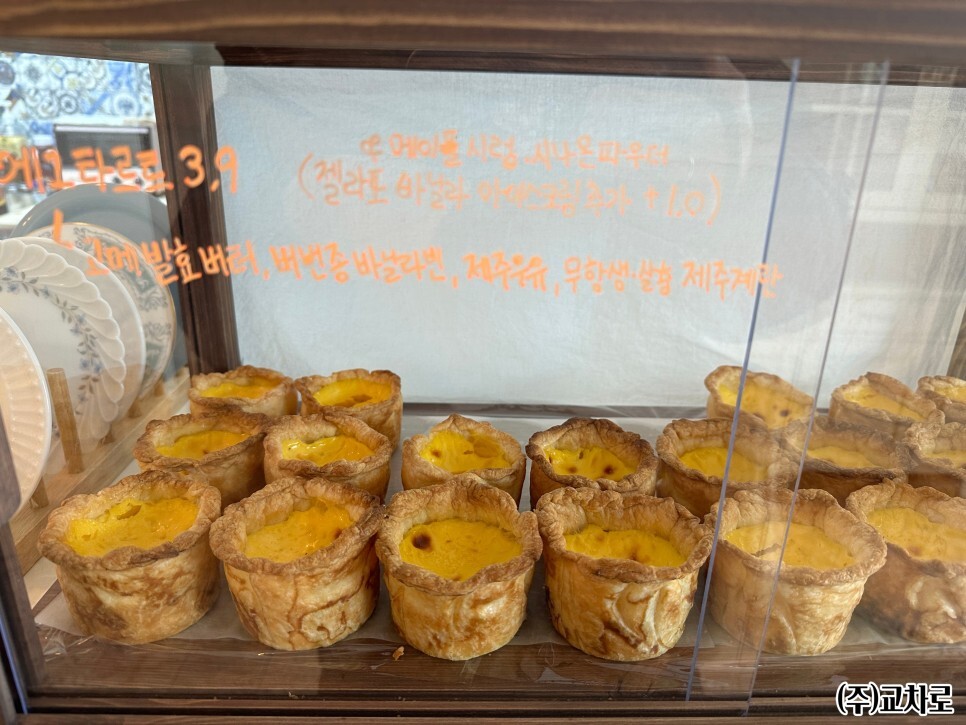 에그타르트 3,9
or 메이플시럽, 시나몬파우더
(젤라또 바닐라 아이스크림 추가 +1.0)
고메발효버터, 버번종바닐라빈, 제주우유, 무항생·살충 제주계란
(주)교차로